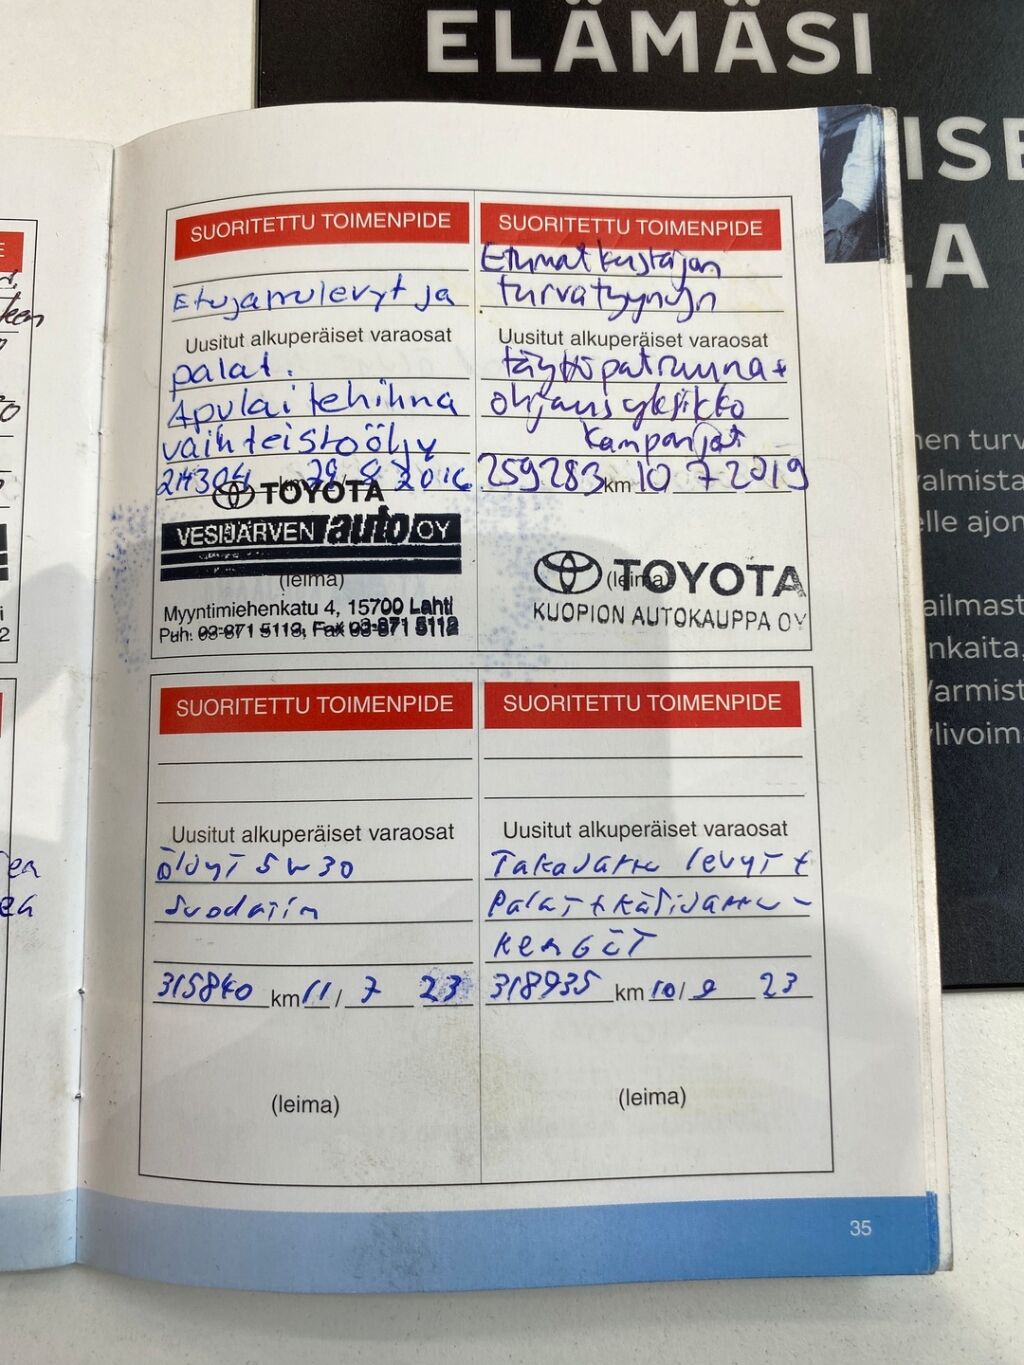 ELÄMÄSI
ISE
LA
SUORITETTU TOIMENPIDE
Etujarrulevyt ja
Uusitut alkuperäiset varaosat
palat.
Apulaitehihna
vaihteistoöljy
214304 km 29/8 2016
TOYOTA
VESIJÄRVEN auto OY
(leima)
Myyntimiehenkatu 4, 15700 Lahti
Puh. 03-871 5113, Fax 03-871 5112
SUORITETTU TOIMENPIDE
Etumatkustajan
turvatyynyn
Uusitut alkuperäiset varaosat
täyttöpatruuna+
ohjausyksikkö
kampanjat
259283 km 10 7 2019
(leima)
TOYOTA
KUOPION AUTOKAUPPA OY
SUORITETTU TOIMENPIDE
Uusitut alkuperäiset varaosat
Öljyt 5W30
Suodatin
315840 km 11/7 23
(leima)
SUORITETTU TOIMENPIDE
Uusitut alkuperäiset varaosat
Takajarru levyt+
Palat+käsijarru-
kengät
318935 km 10/9 23
(leima)
35
nen turv
valmista
elle ajon
ailmast
nkaita,
Varmist
ylivoim